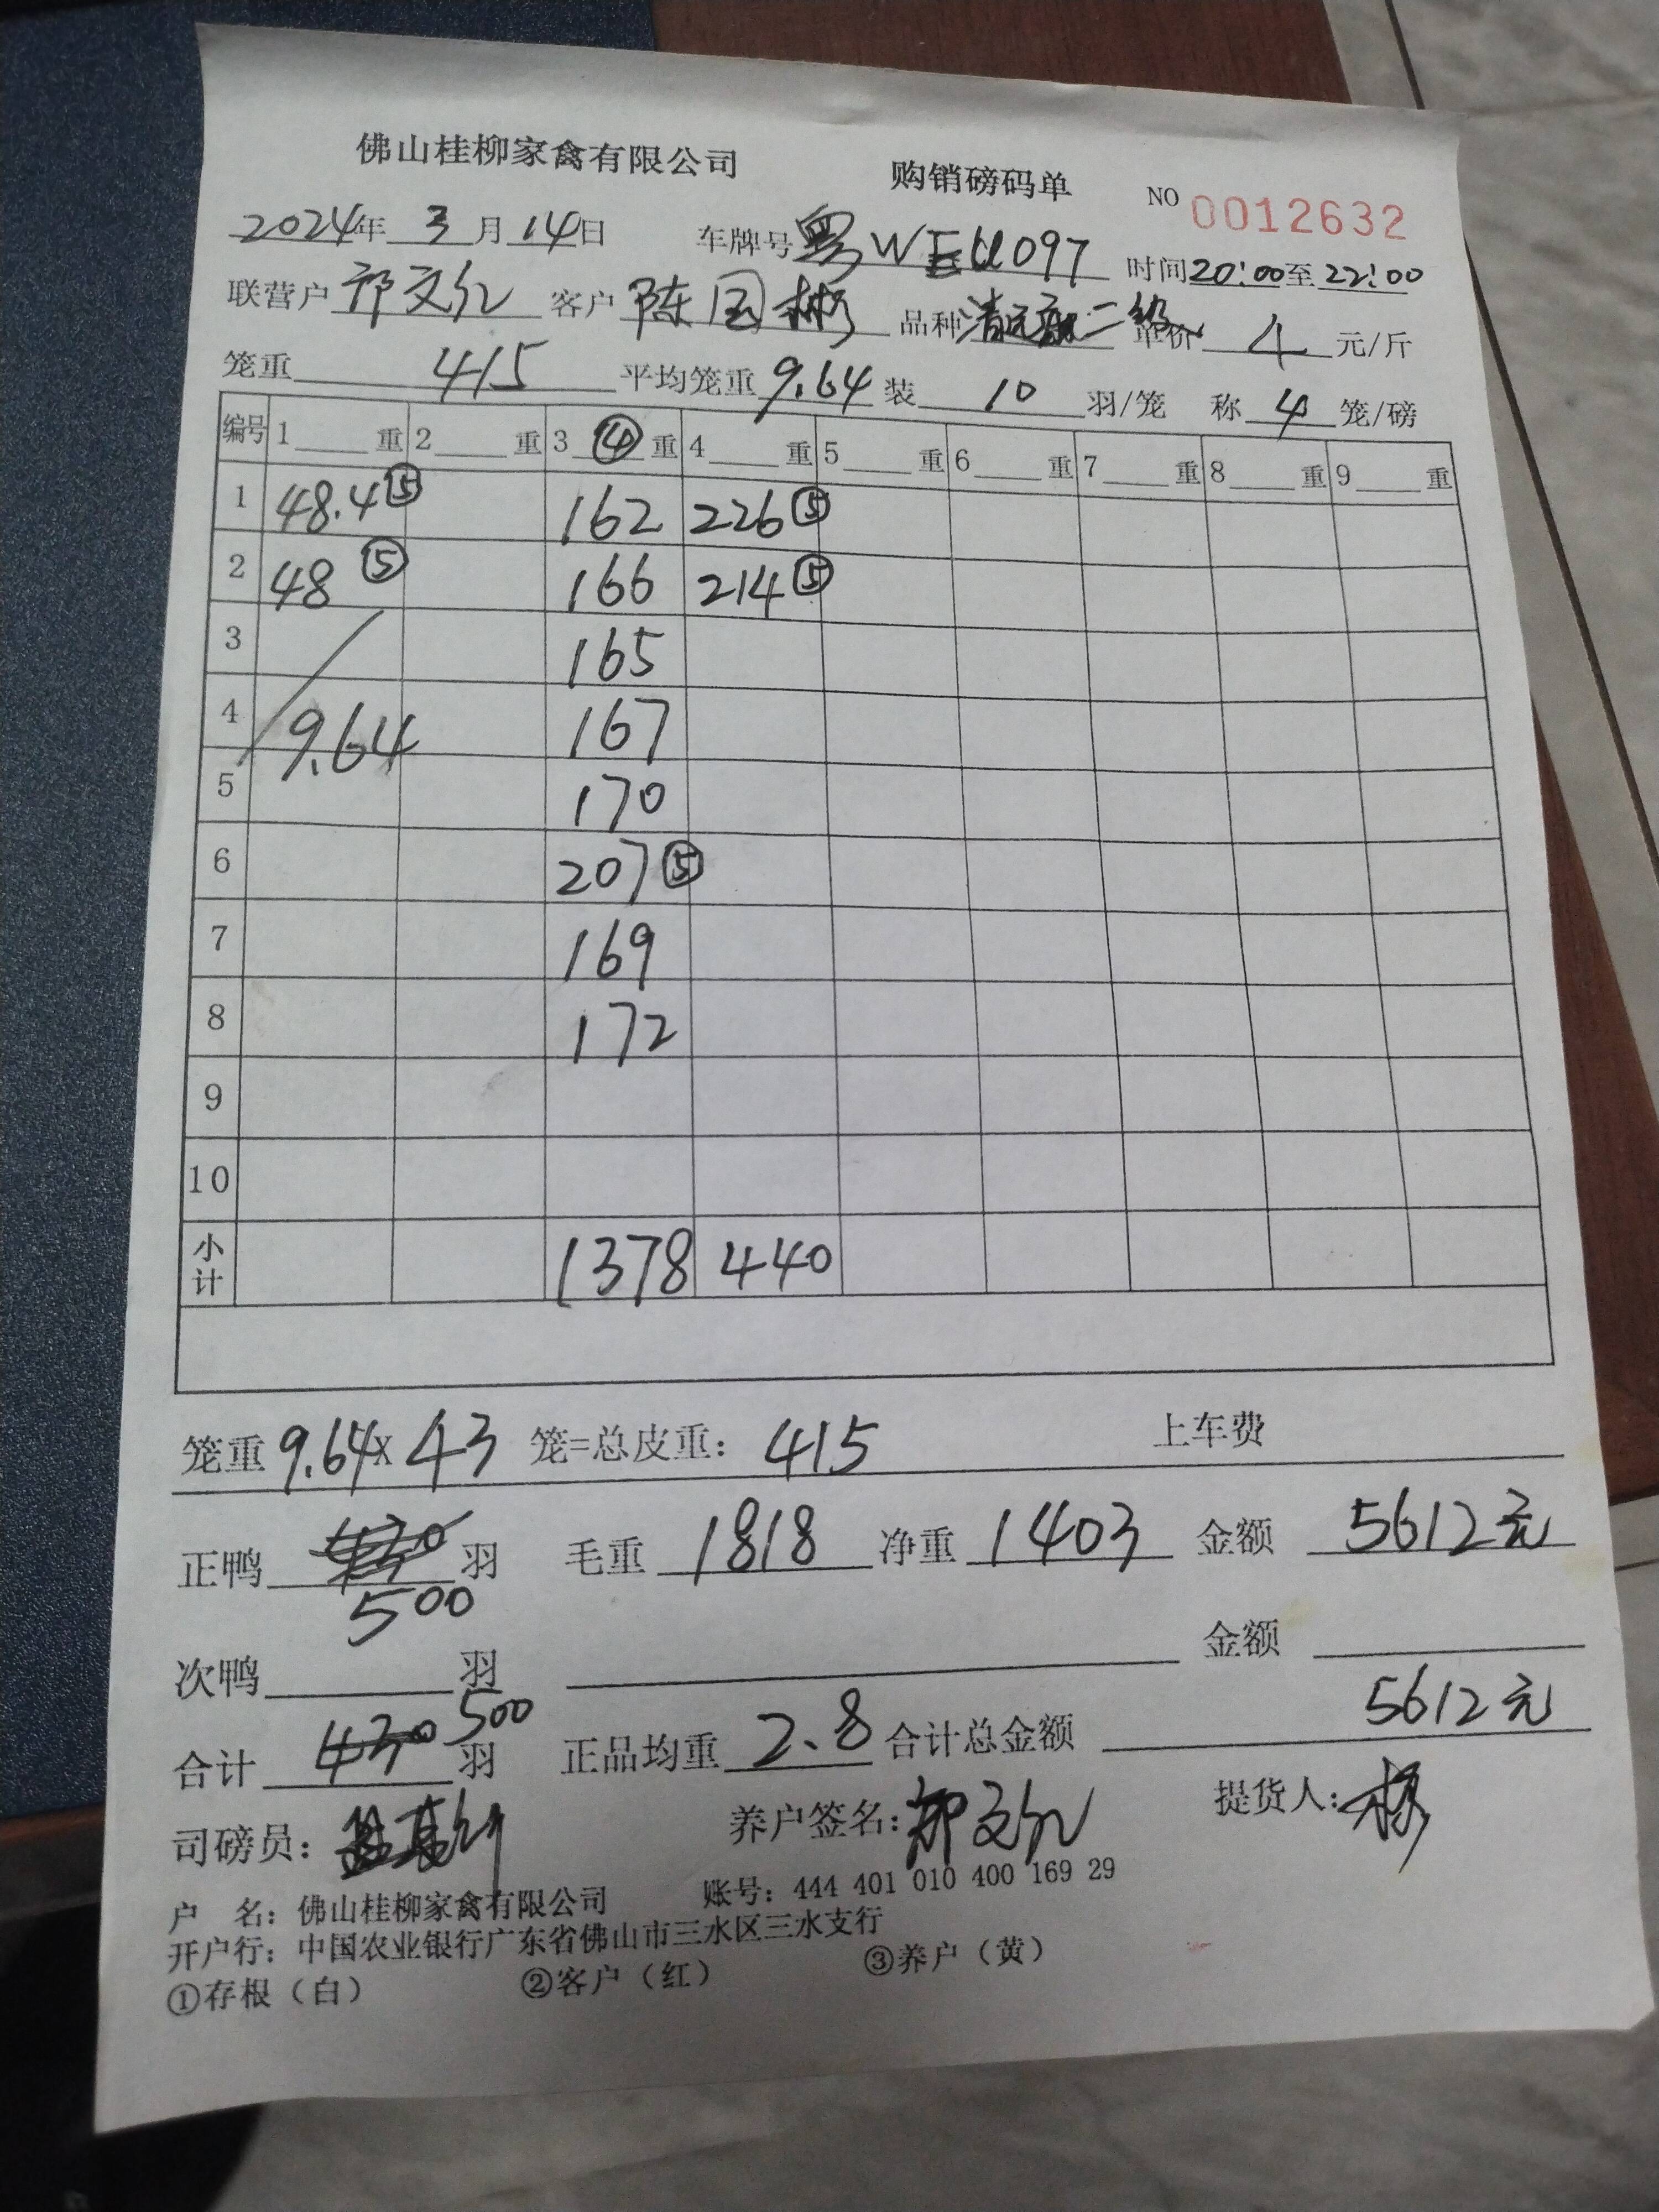 佛山桂柳家禽有限公司 购销磅码单 NO 0012632
2024年 3月 14日 车牌号 粤W 097 时间 20:00至 22:00
联营户 文 客户 陈国彬 品种 二级 单价 4 元/斤
笼重 415 平均笼重 9.64 装 10 羽/笼 称 4 笼/磅
编号 1 重 2 重 3 ④ 重 4 重 5 重 6 重 7 重 8 重 9 重
1 48.4⑤ 162 226⑤
2 48⑤ 166 214⑤
3 165
4 9.64 167
5 170
6 207⑤
7 169
8 172
9
10
小计 1378 440
笼重 9.64 x 43 笼=总皮重: 415 上车费
正鸭 430 羽 毛重 1818 净重 1403 金额 5612元
500
次鸭 羽 金额
合计 430 500 羽 正品均重 2.8 合计总金额 5612元
司磅员: 养户签名: 文 提货人:
户 名: 佛山桂柳家禽有限公司 账号: 444 401 010 400 169 29
开户行: 中国农业银行广东省佛山市三水区三水支行
①存根（白） ②客户（红） ③养户（黄）